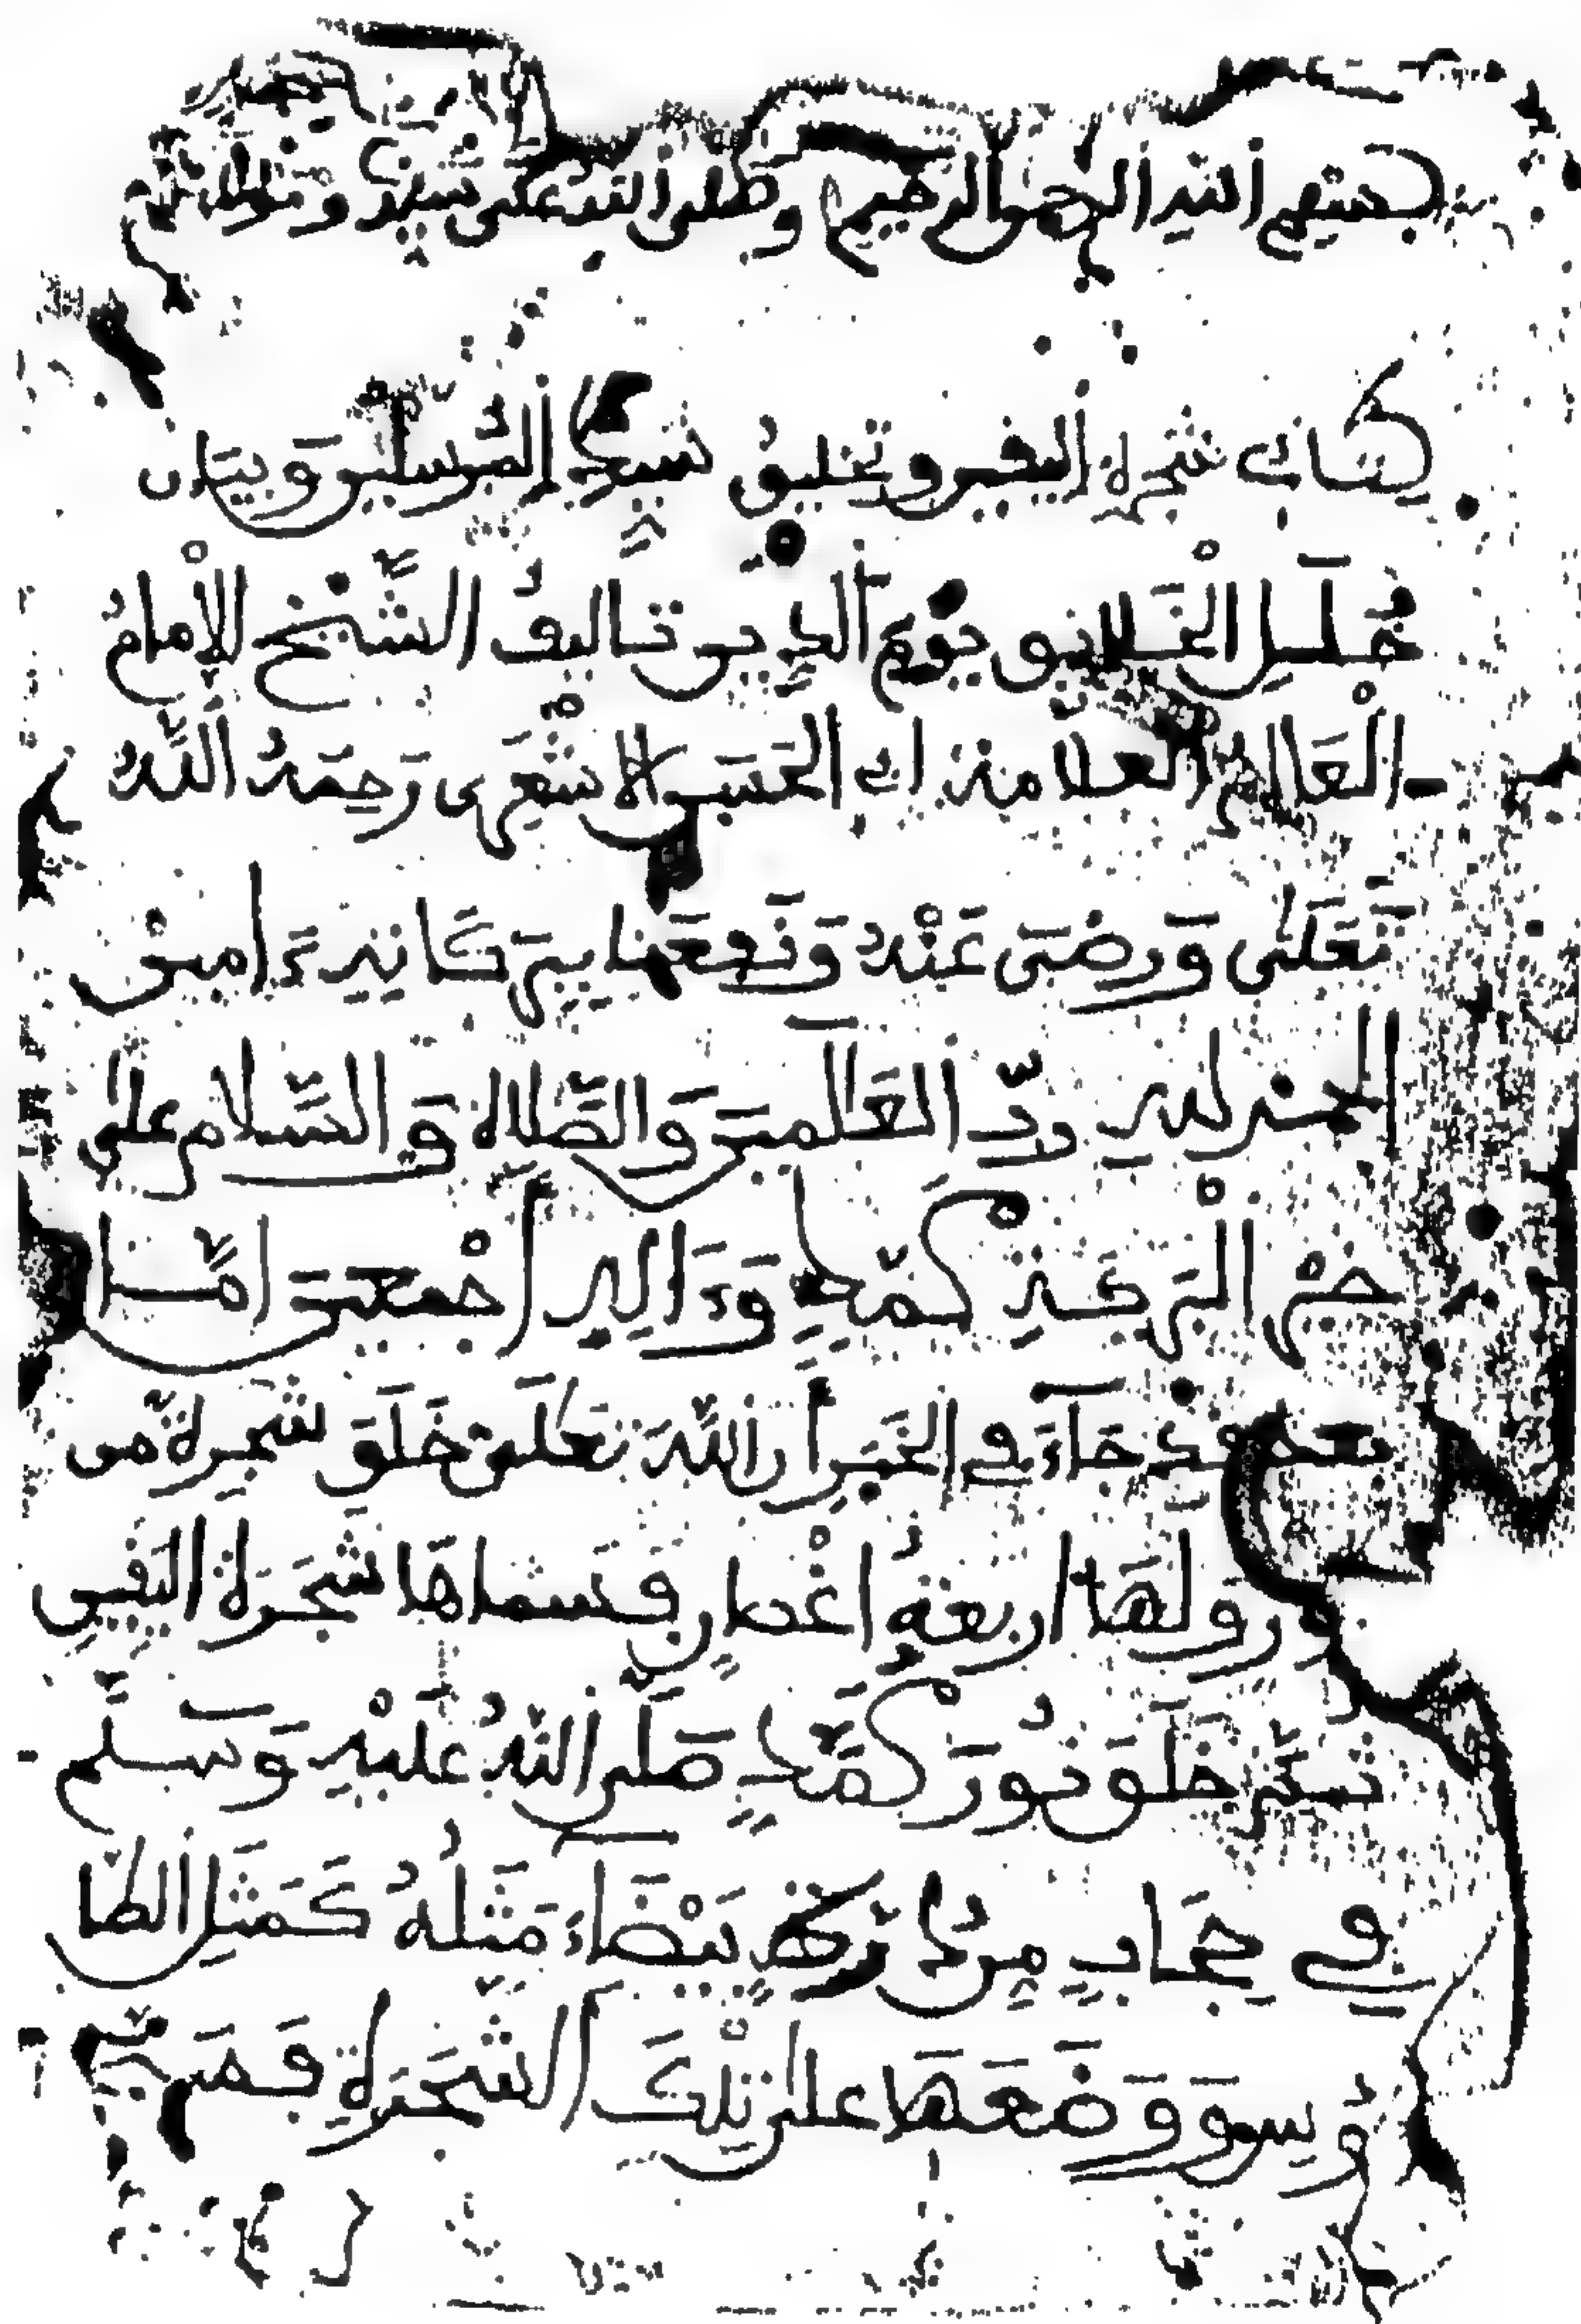 بسم الله الرحمن الرحيم وصلى الله على سيدنا ومولانا
كتاب شجرة اليقين وتخليق سيد المرسلين وبيان
حال الخلائق يوم الدين تاليف الشيخ الامام
العالم العلامة ابي الحسن الاشعري رحمه الله
تعلى ورضي عنه ونفعنا ببركاته ءامين
الحمد لله رب العلمين والصلاة والسلام على
خير البرية محمد وءاله اجمعين اما
بعد فقد جاء في الخبر ان الله تعلى خلق شجرة من
ولها اربعة اغصان فسماها شجرة اليقين
ثم خلق نور محمد صلى الله عليه وسلم
في حجاب من درة بيضاء مثله كمثل الطا
ووس ووضعها على تلك الشجرة